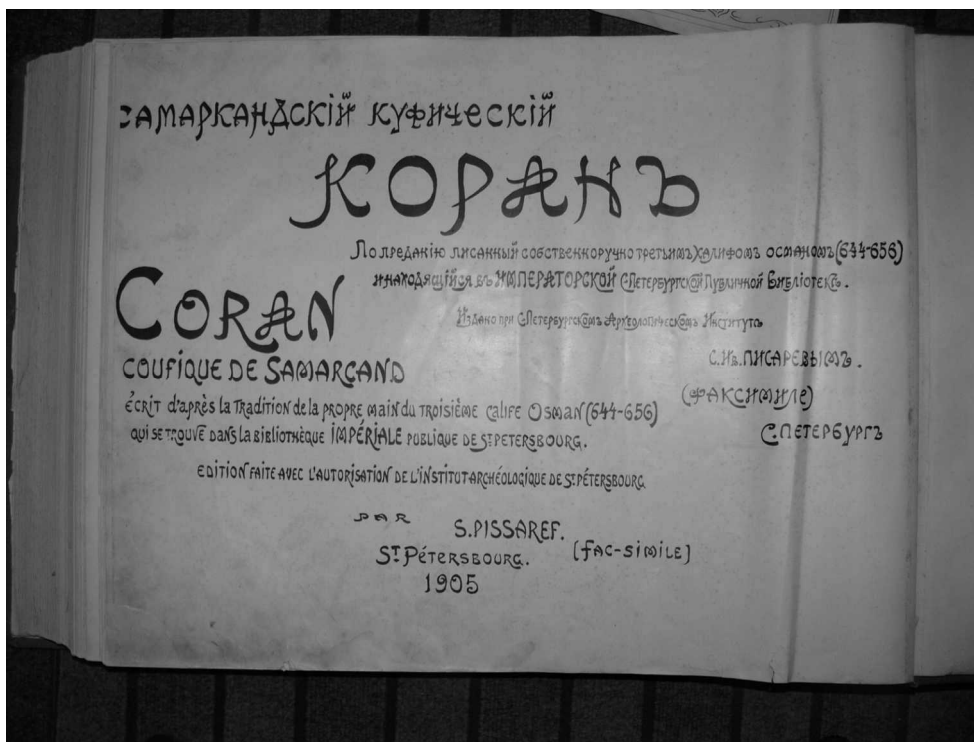 Самаркандскій куфическій
КОРАНЪ
По преданію писанный собственноручно третьимъ Халифомъ Османомъ (644-656)
и находящійся въ ИМПЕРАТОРСКОЙ С-Петербургской Публичной Библіотекѣ.
CORAN
Издано при С-Петербургскомъ Археологическомъ Институтѣ
COUFIQUE DE SAMARCAND
С.Ив.ПИСАРЕВЫМЪ.
(ФАКСИМИЛЕ)
écrit d'après la Tradition de la propre main du troisième Calife Osman (644-656)
С.ПЕТЕРБУРГЪ
qui se trouve dans la bibliothèque IMPÉRIALE publique de St Petersbourg.
EDITION FAITE AVEC L'AUTORISATION DE L'INSTITUT ARCHÉOLOGIQUE DE St PÉTERSBOURG
PAR
S. PISSAREF.
(fac-simile)
St Pétersbourg.
1905